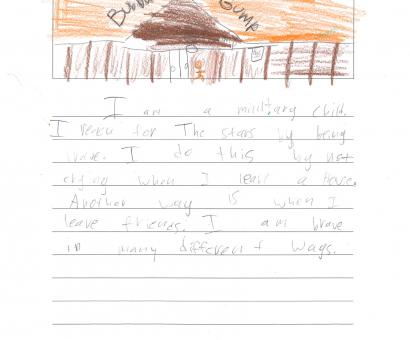 Bubba Gump
I am a military child.
I reach for The stars by being
brave. I do this by not
crying when I leave a House.
Another way is when I
leave friends. I am brave
in many different ways.